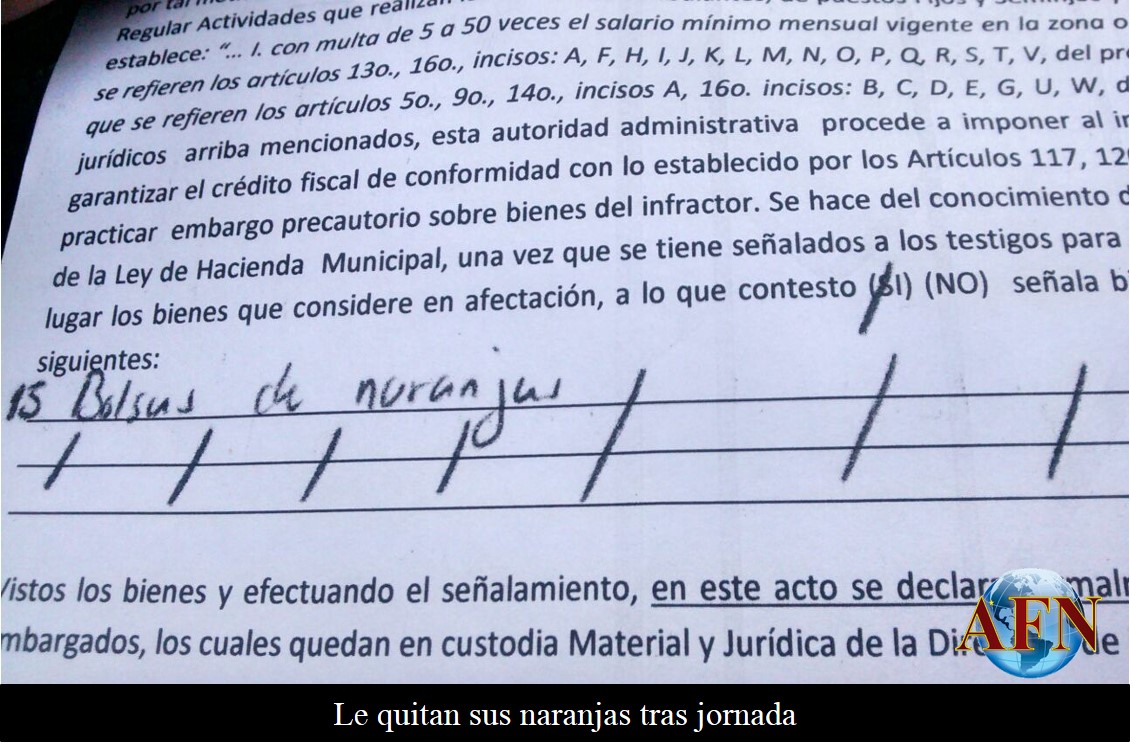 Regular Actividades que
establece: “... I. con multa de 5 a 50 veces el salario mínimo mensual vigente en la zona
se refieren los artículos 13o., 16o., incisos: A, F, H, I, J, K, L, M, N, O, P, Q, R, S, T, V, del
que se refieren los artículos 5o., 9o., 14o., incisos A, 16o. incisos: B, C, D, E, G, U, W,
jurídicos arriba mencionados, esta autoridad administrativa procede a imponer al
garantizar el crédito fiscal de conformidad con lo establecido por los Artículos 117,
practicar embargo precautorio sobre bienes del infractor. Se hace del conocimiento
de la Ley de Hacienda Municipal, una vez que se tiene señalados a los testigos para
lugar los bienes que considere en afectación, a lo que contesto (SI) (NO) señala
siguientes:
15 Bolsas de naranjas
Vistos los bienes y efectuando el señalamiento, en este acto se
mbargados, los cuales quedan en custodia Material y Jurídica de la
AFN
Le quitan sus naranjas tras jornada